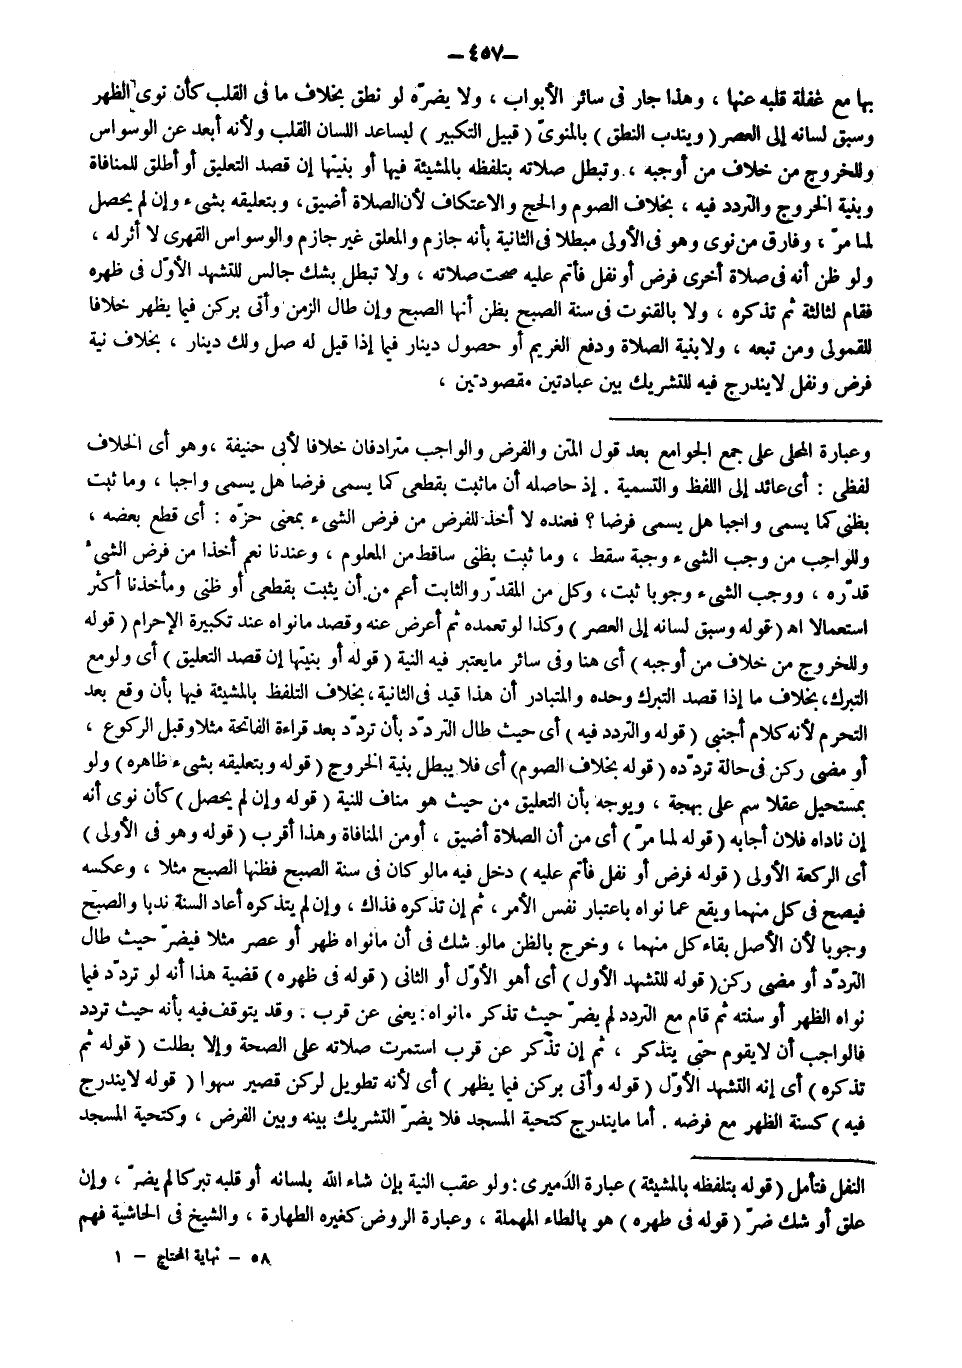 – ٤٥٧ –
بها مع غفلة قلبه عنها ، وهذا جار فى سائر الأبواب ، ولا يضرّه لو نطق بخلاف ما فى القلب كأن نوى الظهر
وسبق لسانه إلى العصر ( ويندب النطق ) بالمنوىّ ( قبيل التكبير ) ليساعد اللسان القلب ولأنه أبعد عن الوسواس
وللخروج من خلاف من أوجبه ، وتبطل صلاته بتلفظه بالمشيئة فيها أو بنيتها إن قصد التعليق أو أطلق للمنافاة
وبنية الخروج والتردد فيه ، بخلاف الصوم والحج والاعتكاف لأن الصلاة أضيق، وبتعليقه بشىء وإن لم يحصل
لما مرّ ، وفارق من نوى وهو فى الأولى مبطلا فى الثانية بأنه جازم والمعلق غير جازم والوسواس القهرى لا أثر له ،
ولو ظن أنه فى صلاة أخرى فرض أو نفل فأتم عليه صحت صلاته ، ولا تبطل بشك جالس للتشهد الأوّل فى ظهره
فقام لثالثة ثم تذكره ، ولا بالقنوت فى سنة الصبح بظن أنها الصبح وإن طال الزمن وأتى بركن فيما يظهر خلافا
للقمولى ومن تبعه ، ولا بنية الصلاة ودفع الغريم أو حصول دينار فيما إذا قيل له صل ولك دينار ، بخلاف نية
فرض ونفل لا يندرج فيه للتشريك بين عبادتين مقصودتين ،
وعبارة المحلى على جمع الجوامع بعد قول المتن والفرض والواجب مترادفان خلافا لأبى حنيفة ، وهو أى الخلاف
لفظى : أى عائد إلى اللفظ والتسمية . إذ حاصله أن ما ثبت بقطعى كما يسمى فرضا هل يسمى واجبا ، وما ثبت
بظنى كما يسمى واجبا هل يسمى فرضا ؟ فعنده لا أخذ للفرض من فرض الشىء بمعنى حزّه : أى قطع بعضه ،
وللواجب من وجب الشىء وجبة سقط ، وما ثبت بظنى ساقط من المعلوم ، وعندنا نعم أخذا من فرض الشىء
قدّره ، ووجب الشىء وجوبا ثبت، وكل من المقدّر والثابت أعم من أن يثبت بقطعى أو ظنى ومأخذنا أكثر
استعمالا اه ( قوله وسبق لسانه إلى العصر ) وكذا لو تعمده ثم أعرض عنه وقصد ما نواه عند تكبيرة الإحرام ( قوله
وللخروج من خلاف من أوجبه ) أى هنا وفى سائر ما يعتبر فيه النية ( قوله أو بنيتها إن قصد التعليق ) أى ولو مع
التبرك، بخلاف ما إذا قصد التبرك وحده والمتبادر أن هذا قيد فى الثانية ، بخلاف التلفظ بالمشيئة فيها بأن وقع بعد
التحرم لأنه كلام أجنبى ( قوله والتردد فيه ) أى حيث طال التردّد بأن تردّد بعد قراءة الفاتحة مثلا وقبل الركوع ،
أو مضى ركن فى حالة تردّده ( قوله بخلاف الصوم) أى فلا يبطل بنية الخروج ( قوله وبتعليقه بشىء ظاهره ) ولو
بمستحيل عقلا سم على بهجة ، ويوجه بأن التعليق من حيث هو مناف للنية ( قوله وإن لم يحصل ) كأن نوى أنه
إن ناداه فلان أجابه ( قوله لما مرّ ) أى من أن الصلاة أضيق ، أو من المنافاة وهذا أقرب ( قوله وهو فى الأولى )
أى الركعة الأولى ( قوله فرض أو نفل فأتم عليه ) دخل فيه ما لو كان فى سنة الصبح فظنها الصبح مثلا ، وعكسه
فيصح فى كل منهما ويقع عما نواه باعتبار نفس الأمر ، ثم إن تذكره فذاك ، وإن لم يتذكره أعاد السنة ندبا والصبح
وجوبا لأن الأصل بقاء كل منهما ، وخرج بالظن ما لو شك فى أن ما نواه ظهر أو عصر مثلا فيضرّ حيث طال
التردّد أو مضى ركن ( قوله للتشهد الأول ) أى أهو الأوّل أو الثانى ( قوله فى ظهره ) قضية هذا أنه لو تردّد فيما
نواه الظهر أو سنته ثم قام مع التردد لم يضرّ حيث تذكر ما نواه : يعنى عن قرب . وقد يتوقف فيه بأنه حيث تردد
فالواجب أن لا يقوم حتى يتذكر ، ثم إن تذكر عن قرب استمرت صلاته على الصحة وإلا بطلت ( قوله ثم
تذكره ) أى إنه التشهد الأوّل ( قوله وأتى بركن فيما يظهر ) أى لأنه تطويل لركن قصير سهوا ( قوله لا يندرج
فيه ) كسنة الظهر مع فرضه . أما ما يندرج كتحية المسجد فلا يضرّ التشريك بينه وبين الفرض ، وكتحية المسجد
النفل فتأمل ( قوله بتلفظه بالمشيئة ) عبارة الدّميرى : ولو عقب النية بإن شاء الله بلسانه أو قلبه تبركا لم يضرّ ، وإن
علق أو شك ضرّ ( قوله فى طهره ) هو بالطاء المهملة ، وعبارة الروض كغيره الطهارة ، والشيخ فى الحاشية فهم
٥٨ – نهاية المحتاج – ١